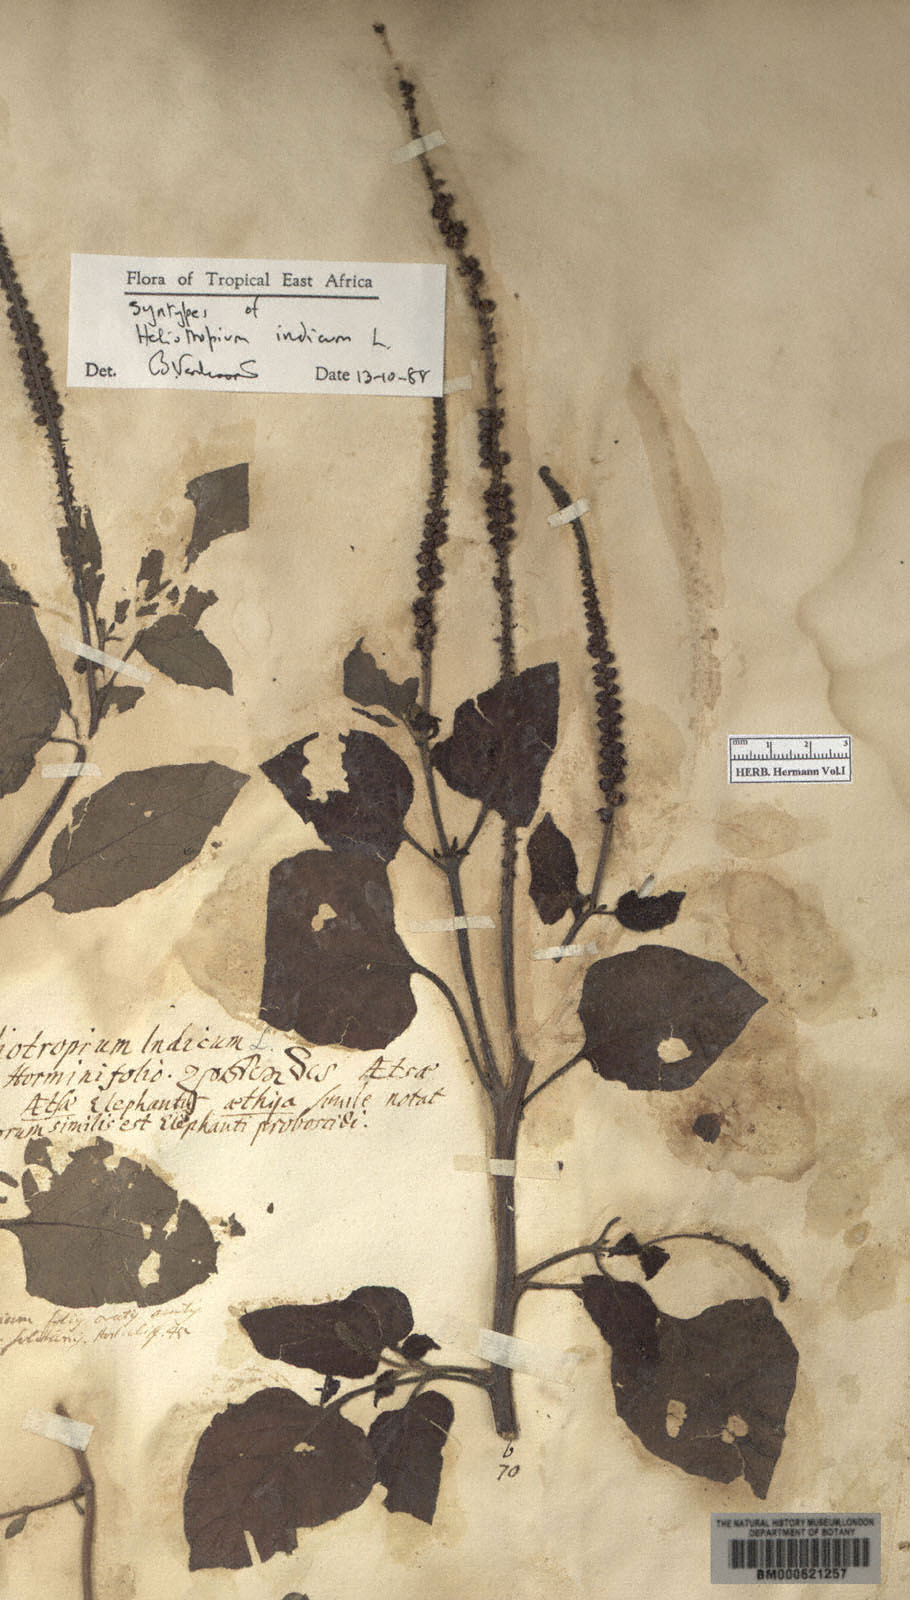 Flora of Tropical East Africa
Syntypes of
Heliotropium indicum L.
Det. B Verdcourt
Date 13-10-88
mm 1 2 3
HERB. Hermann Vol.I
iotropium Indicum L.
Horminifolio. Ætsæ
Ætsæ Elephantus æthya simile notat
orum similis est Elephanti proboscidi.
folijs ovatis acutis
b
70
THE NATURAL HISTORY MUSEUM, LONDON
DEPARTMENT OF BOTANY
BM000621257